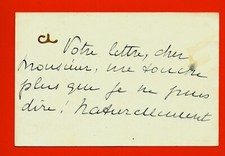 Votre lettre, cher
Monsieur, me touche
plus que je ne puis
dire! Naturellement